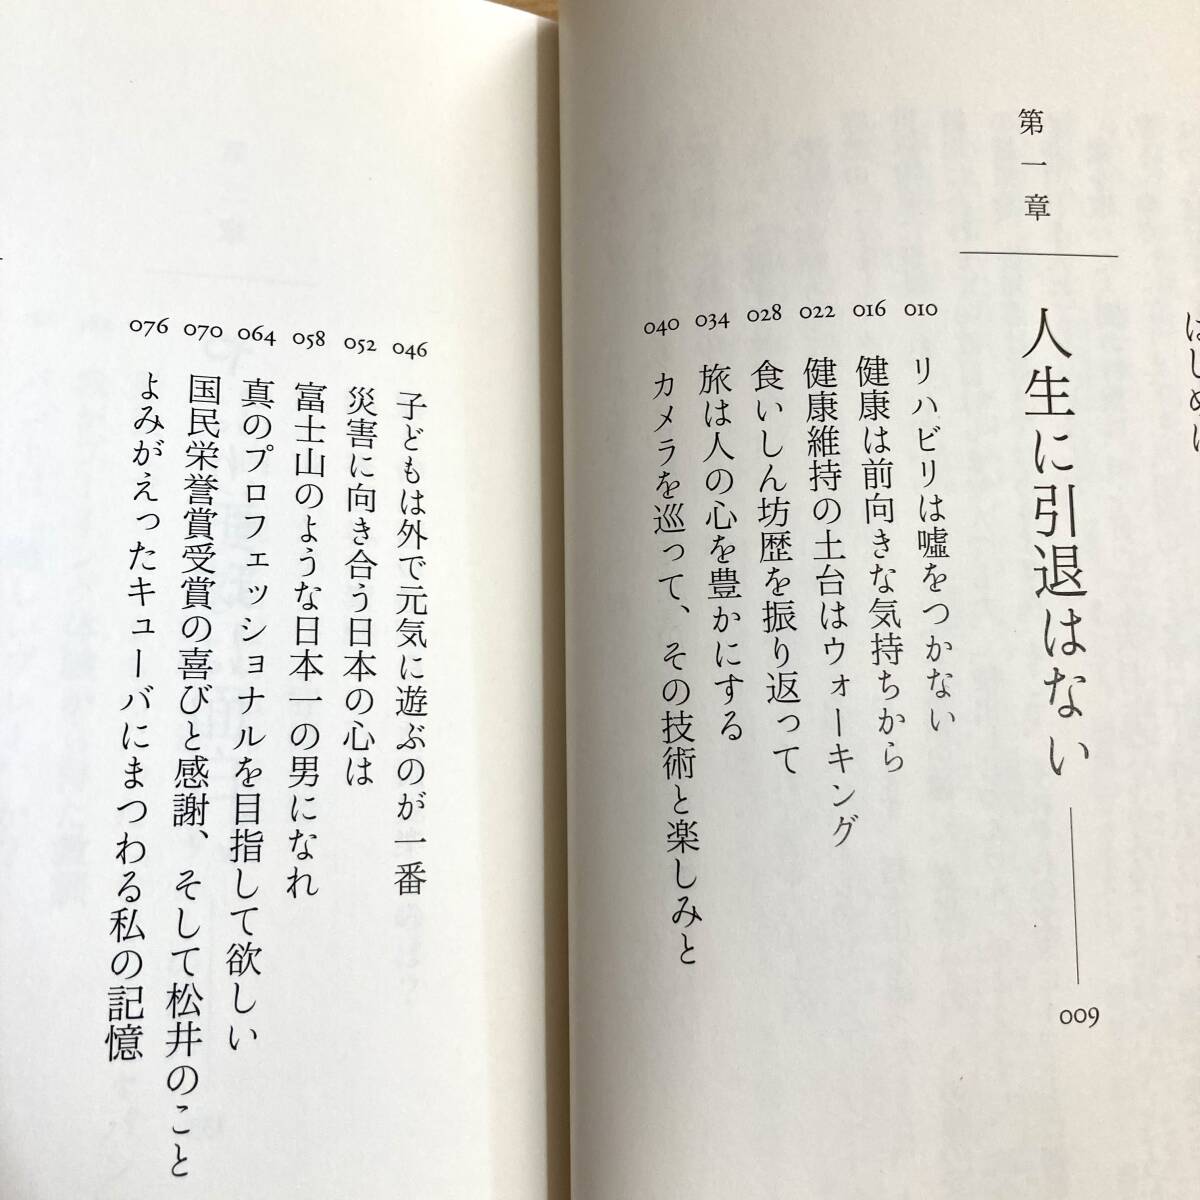 はじめに
第一章
人生に引退はない
009
010 リハビリは嘘をつかない
016 健康は前向きな気持ちから
022 健康維持の土台はウォーキング
028 食いしん坊歴を振り返って
034 旅は人の心を豊かにする
040 カメラを巡って、その技術と楽しみと
046 子どもは外で元気に遊ぶのが一番
052 災害に向き合う日本の心は
058 富士山のような日本一の男になれ
064 真のプロフェッショナルを目指して欲しい
070 国民栄誉賞受賞の喜びと感謝、そして松井のこと
076 よみがえったキューバにまつわる私の記憶